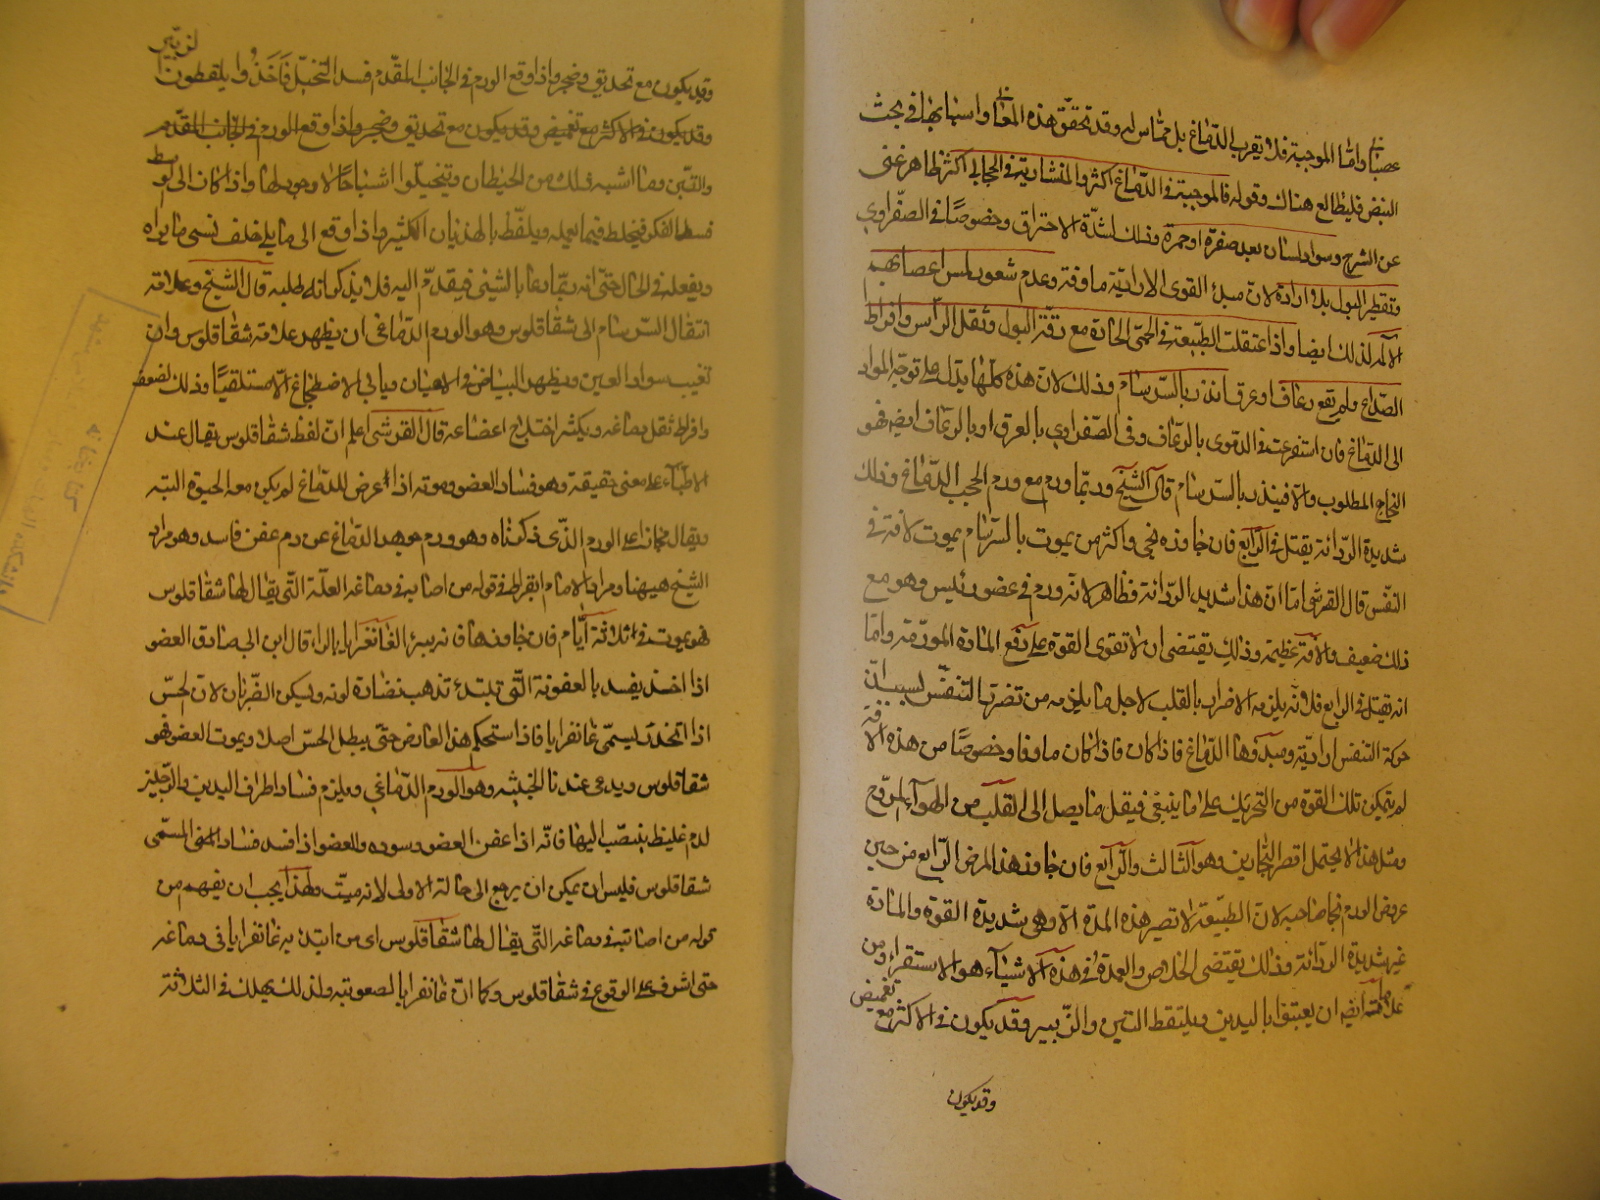 عصبا واما الموجبة فلا يقرب الدماغ بل مماس له وقد تحقق هذه المعانى واسبابها فى بحث
النبض فليطالع هناك وقوله فالموجبة فى الدماغ اكثر والمنشارية فى الحجابى اكثر ظاهر غنى
عن الشرح وسواد لسان بعد صفرة او حمرة وذلك لشدة الاحتراق وخصوصًا فى الصفراوي
وتقطير البول بلا ارادة لان مبدئ القوى الارادية ماوفة وعدم شعور بلمس اعصابهم
الالم لذلك ايضا واذا اعتقلت الطبيعة فى الحمى الحادة مع رقة البول وثقل الراس وافراط
الصداع ولم يقع رعاف او عرق انذر بالسرسام وذلك لان هذه كلها يدل على توجه المواد
الى الدماغ فان استفرغت فى الدموى بالرعاف وفى الصفراوي بالعرق او بالرعاف ايضه فهو
المطلوب والا فينذر بالسرسام قال الشيخ وربما ورم مع ورم الحجب الدماغ وذلك
شديد الردائة يقتل فى الرابع فان جاوزه نجى واكثر من يموت بالسرسام يموت لافة فى
النفس قال القرشى اما ان هذا شديد الردائة فظاهر لانه ورم فى عضو رئيس وهو مع
ذلك ضعيف والافة عظيمة وذلك يقتضى ان لا تقوى القوة على دفع المادة المورمة واما
انه يقتل فى الرابع فلانه يلزمه الاضرار بالقلب لاجل ما يلزمه من تضرر التنفس بسبب ان
حركة التنفس ارادية ومبدؤها الدماغ فاذا كان فاذا كان ماوفا وخصوصًا من هذه الافة
لم يتمكن تلك القوة من التحريك على ما ينبغى فيقل ما يصل الى القلب من الهواء المروح
ومثل هذا لا يحتمل اقصر البحارين وهو الثالث والرابع فان جاوز هذا المرض الرابع من حين
عروض الورم نجا صاحبه لان الطبيعة لا تصير هذه المدة الا وهى شديدة القوة والمادة
غير شديدة الردائة وذلك يقتضى الخلاص والعمدة فى هذه الاشياء هو الاستقراء ومن
علاماته ايضه ان يعبثوا باليدين ويلتقط التبن والزبير وقد يكون فى الاكثر مع تغميض
وقد يكون
وقد يكون مع تحديق وضجر واذا وقع الورم فى الجانب المقدم فسد التخيل فاخذوا يلقطون الزبير
وقد يكون فى الاكثر مع تغميض وقد يكون مع تحديق وضجر واذا وقع الورم فى الجانب المقدم
والتبن وما اشبه ذلك من الحيطان ويتخيلوا اشباحًا لا وجود لها واذا كان الى الوسط
فسد الفكر فيخلط فيما يعمله ويلفظ بالهذيان الكثير واذا وقع الى ما يلى خلف نسى ما يراه
ويفعله فى الحال حتى انه ربما دعا بالشيئ فيقدم اليه فلا يذكر انه طلبه قال الشيخ وعلامة
انتقال السرسام الى شقاقلوس وهو الورم الدماغى ان يظهر علامة شقاقلوس وان
تغيب سواد العين ويظهر البياض فى الاحيان ويابى الاضطجاع الا مستلقيًا وذلك لضعفه
وافراط ثقل دماغه ويكثر اختلاج اعضاءه قال القرشى اعلم ان لفظ شقاقلوس يقال عند
الاطباء على معنى حقيقة وهو فساد العضو وموته اذا عرض للدماغ لم يكن معه الحيوة البتة
ويقال مجازا على الورم الذى ذكرناه وهو ورم جوهر الدماغ عن دم عفن فاسد وهو مراد
الشيخ هيهنا ومراد الامام ابقراط فى قوله من اصابه فى دماغه العلة التى يقال لها شقاقلوس
فهو يموت فى ثلاثة ايام فان جاوزها فانه يبرء الغانغرايا بالراء قال ابن ابى صادق العضو
اذا اخذ يفسد بالعفونة التى تبتدئ تذهب نضارة لونه ويسكن الضربان لان الحس
اذا اتخدر ليسمى غانغرايا فاذا استحكم هذا العارض حتى يبطل الحس اصلا ويموت العضو فهو
شقاقلوس ويدعى عندنا الخبيثه وهو الورم الدماغى ويلزم فساد اطراف اليدين والرجلين
لدم غليظ ينصب اليها فانه اذا عفن العضو وسوده والعضو اذا فسد فساد الحى المسمى
شقاقلوس فليس ان يمكن ان يرجع الى حالته الاولى لانه ميت ولهذا يجب ان يفهم من
قوله من اصابته فى دماغه التى يقال لها شقاقلوس اى من ابتدئ به غانغرايا فى دماغه
حتى اشرف على الوقوع فى شقاقلوس وكما ان غانغرايا لصعوبته ولذلك يهلك فى الثلاثة